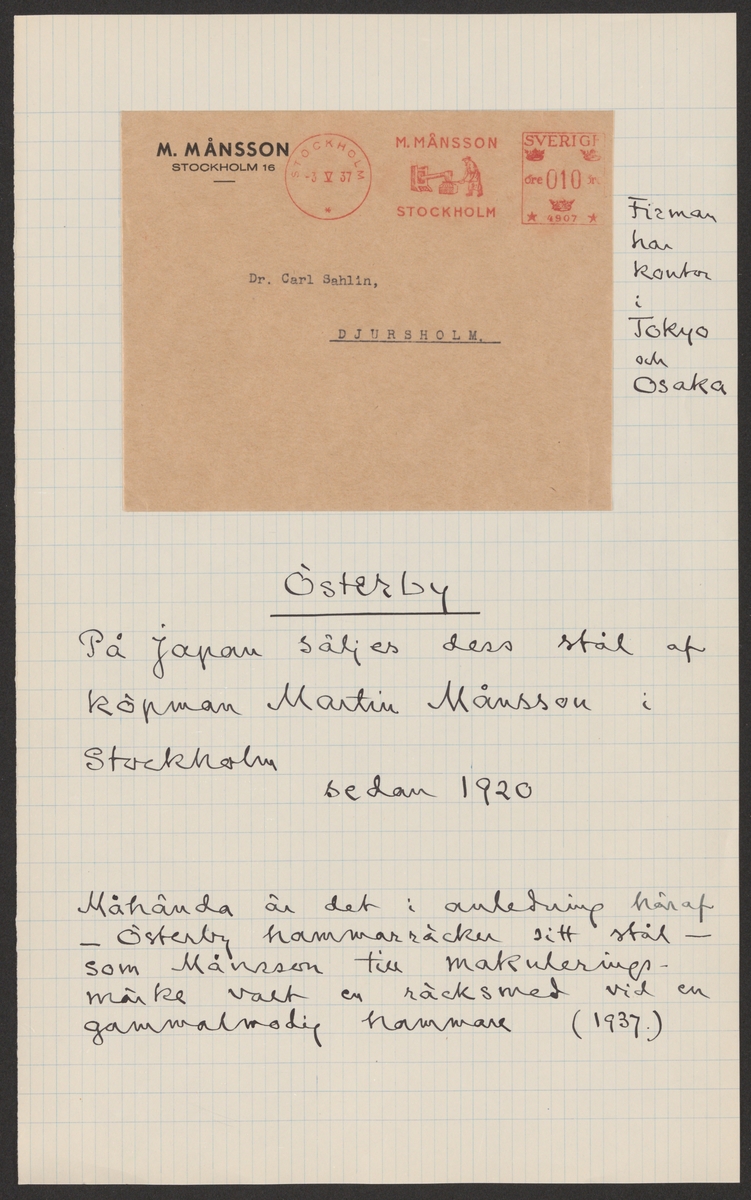 M. MÅNSSON
STOCKHOLM 16
STOCKHOLM
-3 V 37
M. MÅNSSON
STOCKHOLM
SVERIGE
öre 010 öre
4907
Dr. Carl Sahlin,
DJURSHOLM.
Firman
har
kontor
i
Tokyo
och
Osaka
Österby
På Japan säljes dess stål af
köpman Martin Månsson i
Stockholm
sedan 1920
Måhända är det i anledning häraf
— Österby hammarräcker sitt stål —
som Månsson till makulerings-
märke valt en räcksmed vid en
gammalmodig hammare (1937.)